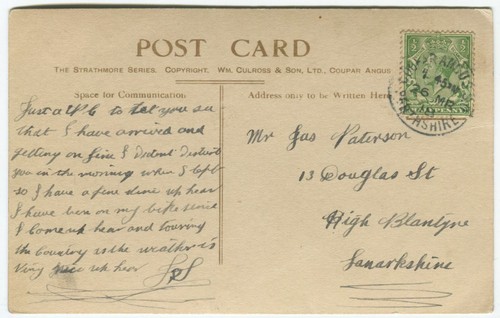 POST CARD
THE STRATHMORE SERIES. COPYRIGHT. WM. CULROSS & SON, LTD., COUPAR ANGUS
Space for Communication
Address only to be Written Here
Just a P C to let you see
that I have arrived and
getting on fine I dident disturb
you in the morning when I left
so I have a fine time up hear
I have been on my bike since
I come up hear and touring
the Country as the weather is
Very nice up hear
Mr Jas Paterson
13 Douglas St
High Blantyre
Lanarkshire
COUPAR ANGUS
26 MR
PERTHSHIRE